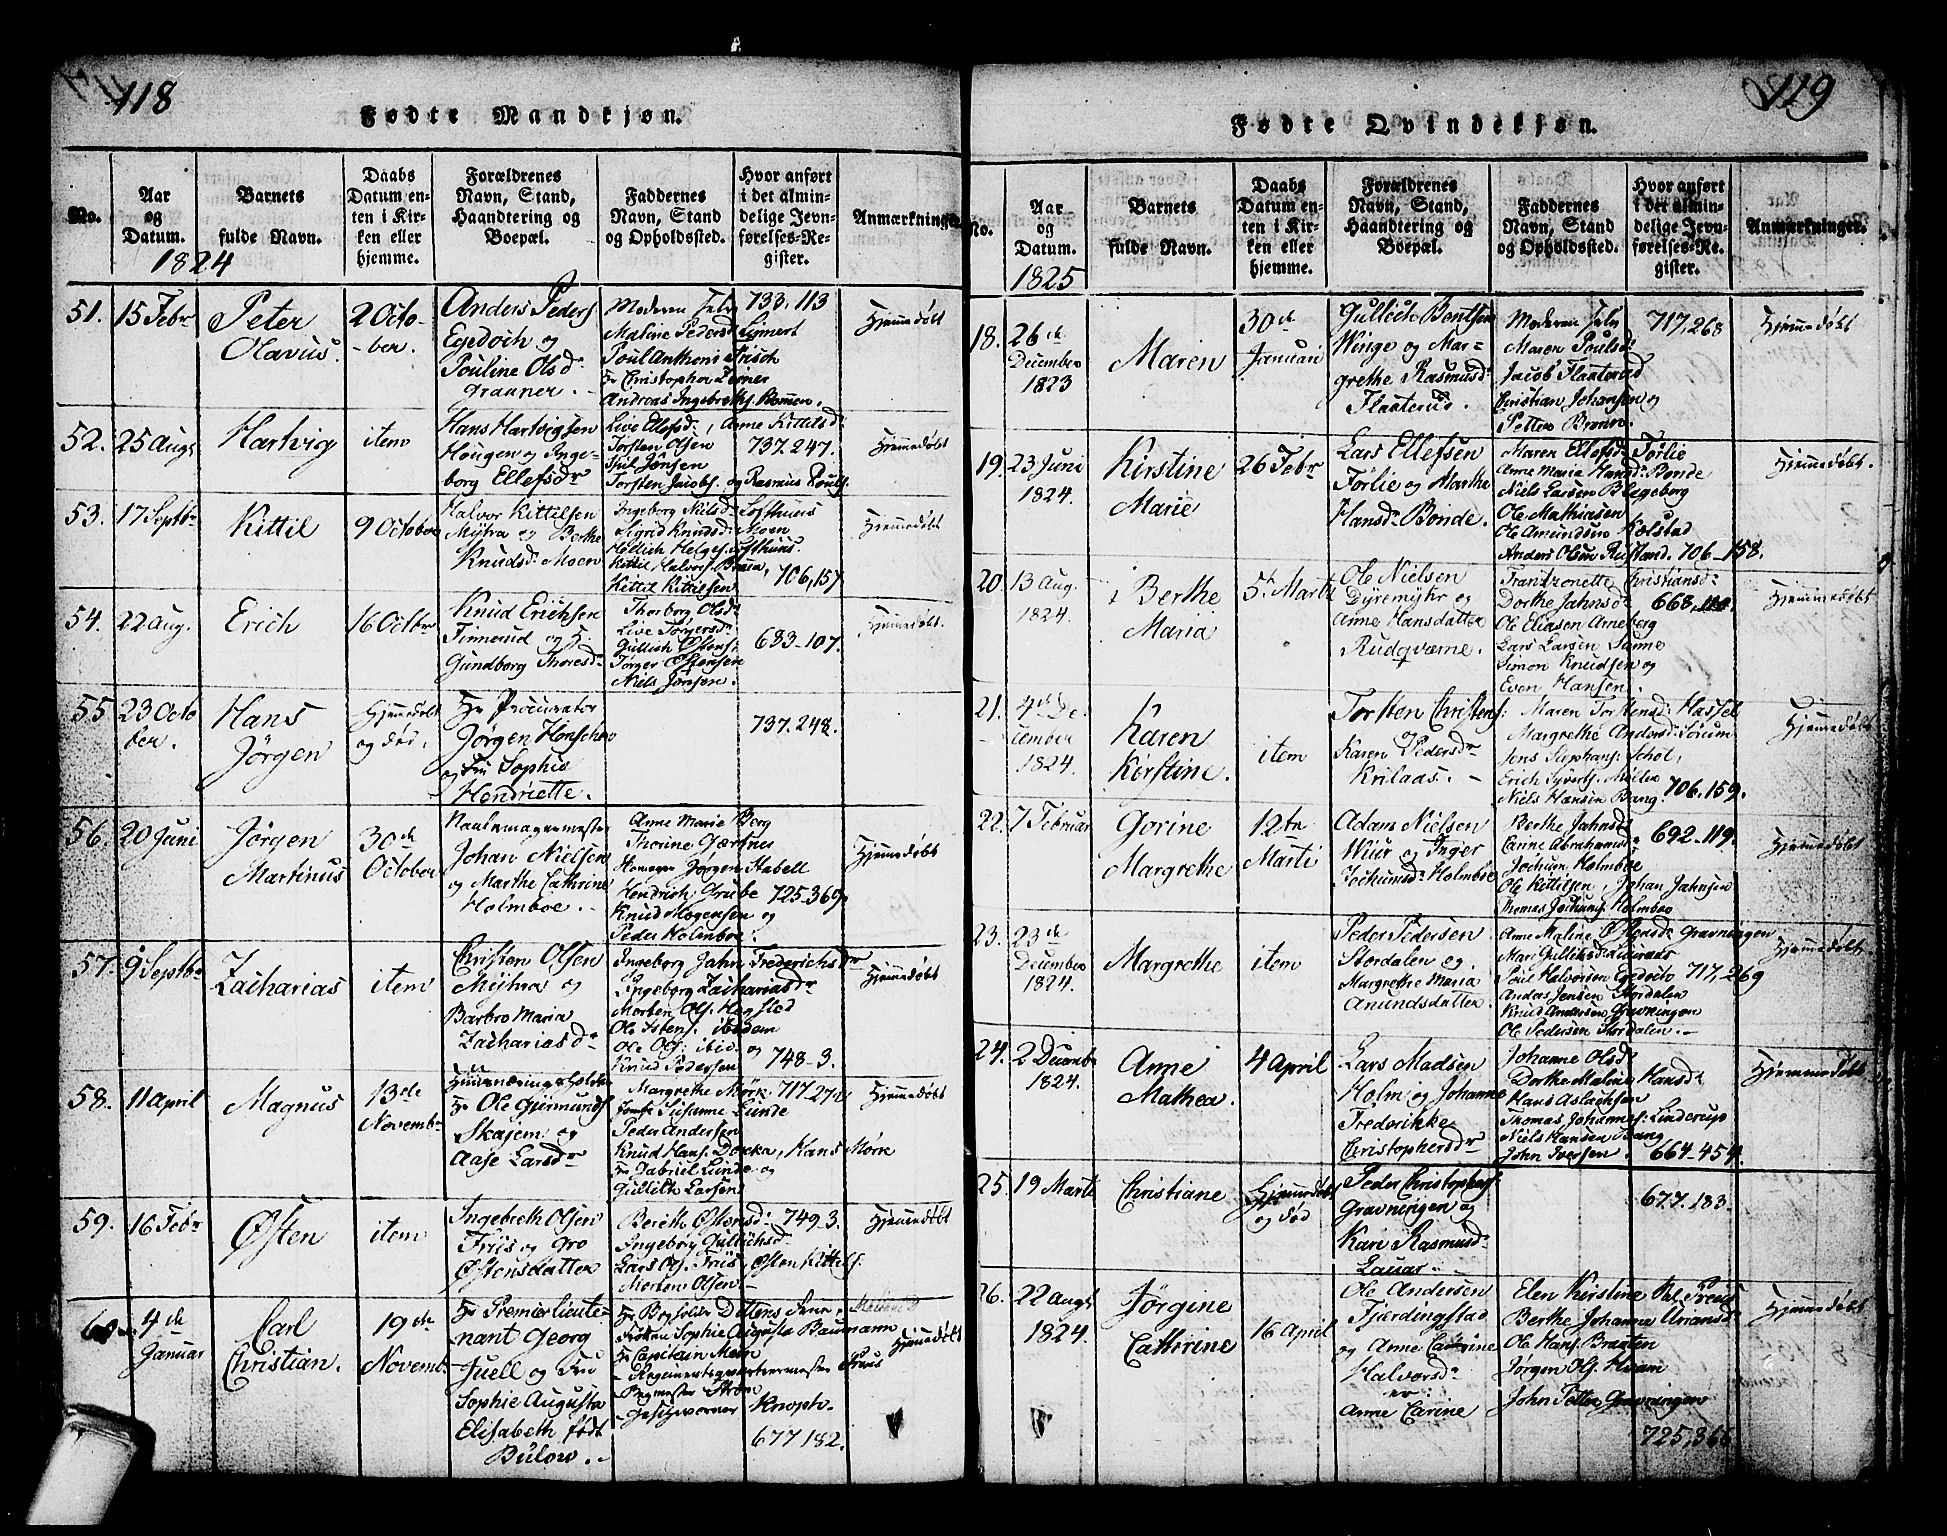 118
Fødte Mandkjøn.
No.
Aar
og
Datum.
1824
Barnets
fulde Navn.
Daabs
Datum en-
ten i Kir-
ken eller
hjemme.
Forældrenes
Navn, Stand,
Haandtering og
Boepæl.
Faddernes
Navn, Stand
og Opholdssted.
Hvor anført
i det almin-
delige Jevn-
førelses-Re-
gister.
Anmærkninger.
51.
15 Febr
Peter
Olavus.
2 Octo-
ber.
Anders Peders
og
Pouline Olsd
graaner.
Moderen selv
Malene Pedersd
Poul Anthons Frisch
Hr Christopher
Andreas Ingebreths.
733.113
Hjemmedøbt
52.
25 Augs
Hartvig
item
Hans Hartvigsen
Hougen og Inge-
borg Ellefsdr
Live Ellefsd:, Anne Kittelsd
Torsten Olsen
Jørsen
Torsten Jacobs. og Rasmus Pouls.
737.247.
Hjemmedøbt
53.
17 Septbr
Kittil
9 October
Halvor Kittilsen
Myhra og Berthe
Knudsd. Moen
Ingeborg Nilsd. Lofthuus
Sigrid Knudsd. Moen
Helges. Lofthuus.
Kittil Halvors.
Kittil Kittilsen
706,157
Hjemmedøbt
54.
22 Aug.
Erich
16 Octbr
Knud Erichsen
Finnerud og H:
Gundborg Thoresd.
Thorborg Olsd.
Live Torgersd.
Gullich Østens.
Torger Østensen
Niels Jørsen.
683-107.
Hjemmedøbt.
55
23 Octo
ber.
Hans
Jörgen
Hjemmedøbt
og død.
Hr Procurator
Jørgen
og Fru Sophie
Hendriette.
737.248.
56.
20 Juni
Jörgen
Martinus
30de
October
Johan Nielsen
og Marthe Cathrine
Holmboe.
Anne Marie Berg
Thorine Gjærtnes
Jørgen Stabell
Hendrich Grube
Knud Mogensen og
Peder Holmboe.
725-369.
Hjemmedøbt
57.
9 Septbr
Zacharias
item
Christen Olsen
Myhra og
Barbro Maria
Zachariasd
Ingeborg Jahn Frederichsdr
Ingeborg Zachariasdr
Morten Ols.
Ole Østens. ibidem
Ole Ols. ibid. og
Knud Pedersen
748-3.
Hjemmedøbt
58.
11 April
Magnus
13de
Novembr
Hr Ole Gurmunds
Skajem og
Aase Larsdr
Margrethe Mørk.
Jomfr Susanne Lunde
Peder Andersen
Knud Hans. Dokka, Hans Mørk
Hr Gabriel Lunde og
Gullich Larsen
Hjemmedøbt
59.
16 Febr
Østen
item
Ingebreth Olsen
Friis og Gro
Østensdatter
Berithe Østensd:
Ingeborg Gullichsd.
Lars Ols. Friis
Morten Olsen
Østen Kittils.
749-3.
Hjemmedøbt
60
4de
Januar
Carl
Christian.
19de
Novemb.
Hr Premierlieute-
nant Georg
Juell og Fru
Sophie Augusta
Elisabeth født
Bülow.
Frøken Sophie Augusta Baumann
Hr Capitain
Regimentsqvarteermester
Knoph.
677 182.
Hjemmedøbt
119
Fødte Qvindekjøn.
No.
Aar
og
Datum.
1825
Barnets
fulde Navn.
Daabs
Datum en-
ten i Kir-
ken eller
hjemme.
Forældrenes
Navn, Stand,
Haandtering og
Boepæl.
Faddernes
Navn, Stand
og Opholdssted.
Hvor anført
i det almin-
delige Jevn-
førelses-Re-
gister.
Anmærkninger.
18.
26de
December
1823
Maren
30de
Januari
Winge og Mar-
grethe Rasmusd.
Flaaterud.
Moderen selv
Maren Poulsd.
Jacob Flaaterud
Christian Johansen og
Petter Bruun.
717,268
Hjemmedøbt
19.
23 Juni
1824.
Kirstine
Marie
26 Febr
Lars Ellefsen
Førlie og Marthe
Hansd. Bonde.
Maren Ellefsd. Førlie
Anne Maria Hansd. Bonde
Niels Larsen Blegeborg
Ole Mathiasen
Ole Amundsen Kolstad
Anders Olsen Rustand.
706-158.
Hjemmedøbt.
20.
13 Aug.
1824.
Berthe
Maria
5t Marti
Ole Nielsen
Dyremyhr og
Anne Hansdatter
Rudqværne.
Christiansd.
Dorthe Jahnsd.
Ole Eliasen Arneberg
Lars Larsen Sanne
Simon Knudsen og
Even Hansen.
Hjemmedøbt
21.
4de De
cember
1824.
Karen
Kerstine.
item
Torsten Christens.
Karen Pedersdr
Krilaas.
Maren Torstensd. Hassel
Margrethe Andersd. Sørum
Jens Stephans. Schol,
Erich Syverts. Møller
Niels Hansen Bang.
706.159.
Hjemmedøbt
22.
7 Februar
Gorine
Margrethe
12te
Marti
Adam Nielsen
Wiur og Inger
Jochumsd. Holmboe
Berthe Jahnsd.
Abrahamsd.
Jochum Holmboe
Ole Kittilsen, Johan Jahnsen
Thomas Jochums. Holmboe
692.119.
Hjemmedøbt
23.
23de
December
1824.
Margrethe
item
Peder Pedersen
Stordalen og
Margrethe Maria
Anundsdatter.
Anne Maline Olsd. Gravningen
Mari Gulliksd.
Poul Halvorsen
Anders Jensen Stordalen
Knud Andersen Gravningen
Ole Pedersen Stordalen.
717,269
Hjemmedøbt
24.
2 Decembr
1824.
Anne
Mathea.
4 April
Lars Madsen
Holm og Johanne
Frederikke
Christopherdr
Johanne Olsd.
Dorthe Maline Hansd.
Hans Aslachsen
Thomas Johannes. Linderup
Niels Hansen Bang
John Iversen.
664-454.
Hjemmedøbt
25.
19 Marti
Christiane
Hjemmedøbt
og død
Peder Christophers.
Gravningen og
Kari Rasmusd.
Lauar
677.183.
26.
22 Augs
1824.
Jörgine
Cathrine
16 April
Ole Andersen
Fjerdingstad
og Anne Cathrine
Halvorsd.
er:
Anne Carine
Elen Kirstine
Berthe Johanne
Ole Hans. Braaten
Jørgen Ols. Hvam
John Petter Gravningen
725,366
Hjemmedøbt